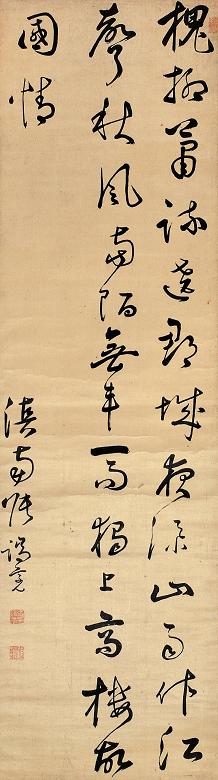 槐柳蕭疏遶郡城夜添山雨作江
聲秋風南陌無車馬獨上高樓故
國情
滇南張端亮